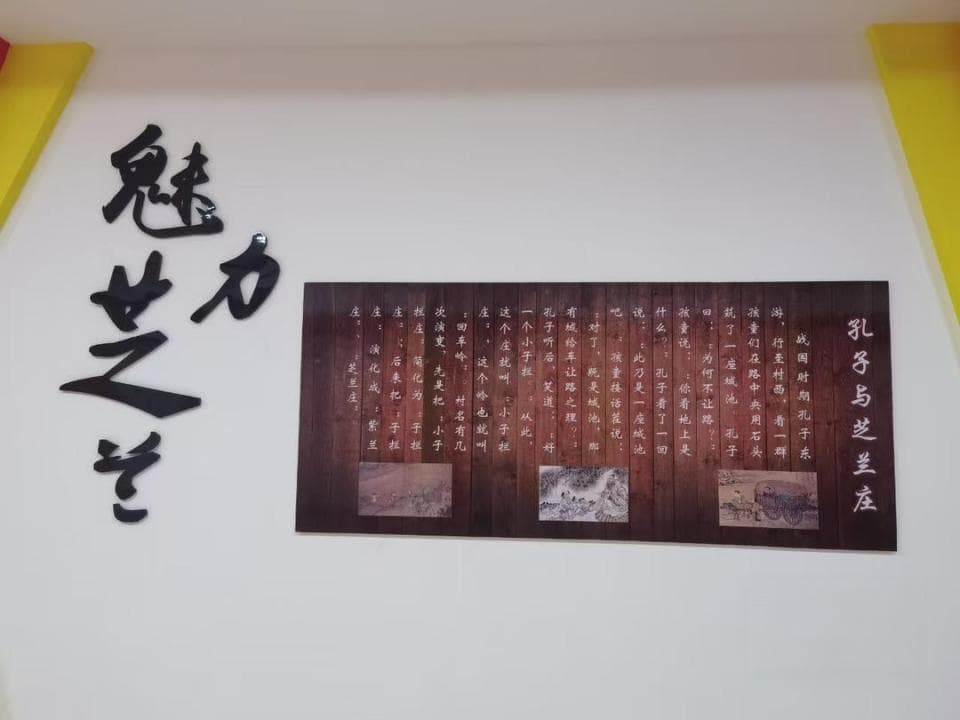 魅力
芝兰
孔子与芝兰庄
战国时期孔子东
游，行至村西，看一群
孩童们在路中央用石头
筑了一座城池。孔子
曰：：为何不让路？：
孩童说：：你看地上是
什么？：孔子看了一回
说：：此乃是一座城池
吧。：孩童接话茬说：
：对了，既是城池，那
有城给车让路之理？：
孔子听后，笑道：：好
一个小子拦。：从此
这个庄就叫：小子拦
庄：，这个岭也就叫
：回车岭：。村名有几
次演变、先是把：小子
拦庄：简化为：子拦
庄：；后来把：子拦
庄：演化成：紫兰
庄：、：芝兰庄：